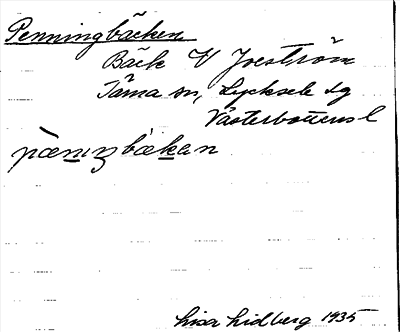 Penningbäcken
Bäck V Joeström
Tärna sn, Lycksele lg
Västerbottens l
pæ̀nıŋbækan
Lisa Lidberg 1935